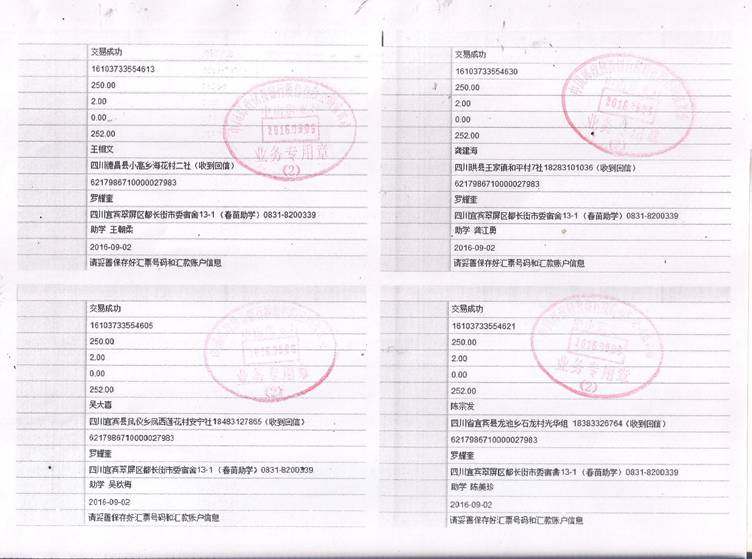 交易成功
16103733554613
250.00
2.00
0.00
252.00
王相文
四川德昌县小高乡海花村二社（收到回信）
6217986710000027983
罗耀奎
四川宜宾翠屏区都长街市委宿舍13-1（春苗助学）0831-8200339
助学 王朝柔
2016-09-02
请妥善保存好汇票号码和汇款账户信息
2016.09.05
业务专用章
(2)
交易成功
16103733554630
250.00
2.00
0.00
252.00
龚建海
四川珙县王家镇和平村7社18283101036（收到回信）
6217986710000027983
罗耀奎
四川宜宾翠屏区都长街市委宿舍13-1（春苗助学）0831-8200339
助学 龚江勇
2016-09-02
请妥善保存好汇票号码和汇款账户信息
业务专用章
(2)
交易成功
16103733554605
250.00
2.00
0.00
252.00
吴大喜
四川宜宾县凤仪乡凤西莲花村安宁社18483127865（收到回信）
6217986710000027983
罗耀奎
四川宜宾翠屏区都长街市委宿舍13-1（春苗助学）0831-8200339
助学 吴秋梅
2016-09-02
请妥善保存好汇票号码和汇款账户信息
业务专用章
(2)
交易成功
16103733554621
250.00
2.00
0.00
252.00
陈宗发
四川省宜宾县龙池乡石龙村光华组 18383326764（收到回信）
6217986710000027983
罗耀奎
四川宜宾翠屏区都长街市委宿舍13-1（春苗助学）0831-8200339
助学 陈美珍
2016-09-02
请妥善保存好汇票号码和汇款账户信息
业务专用章
(2)